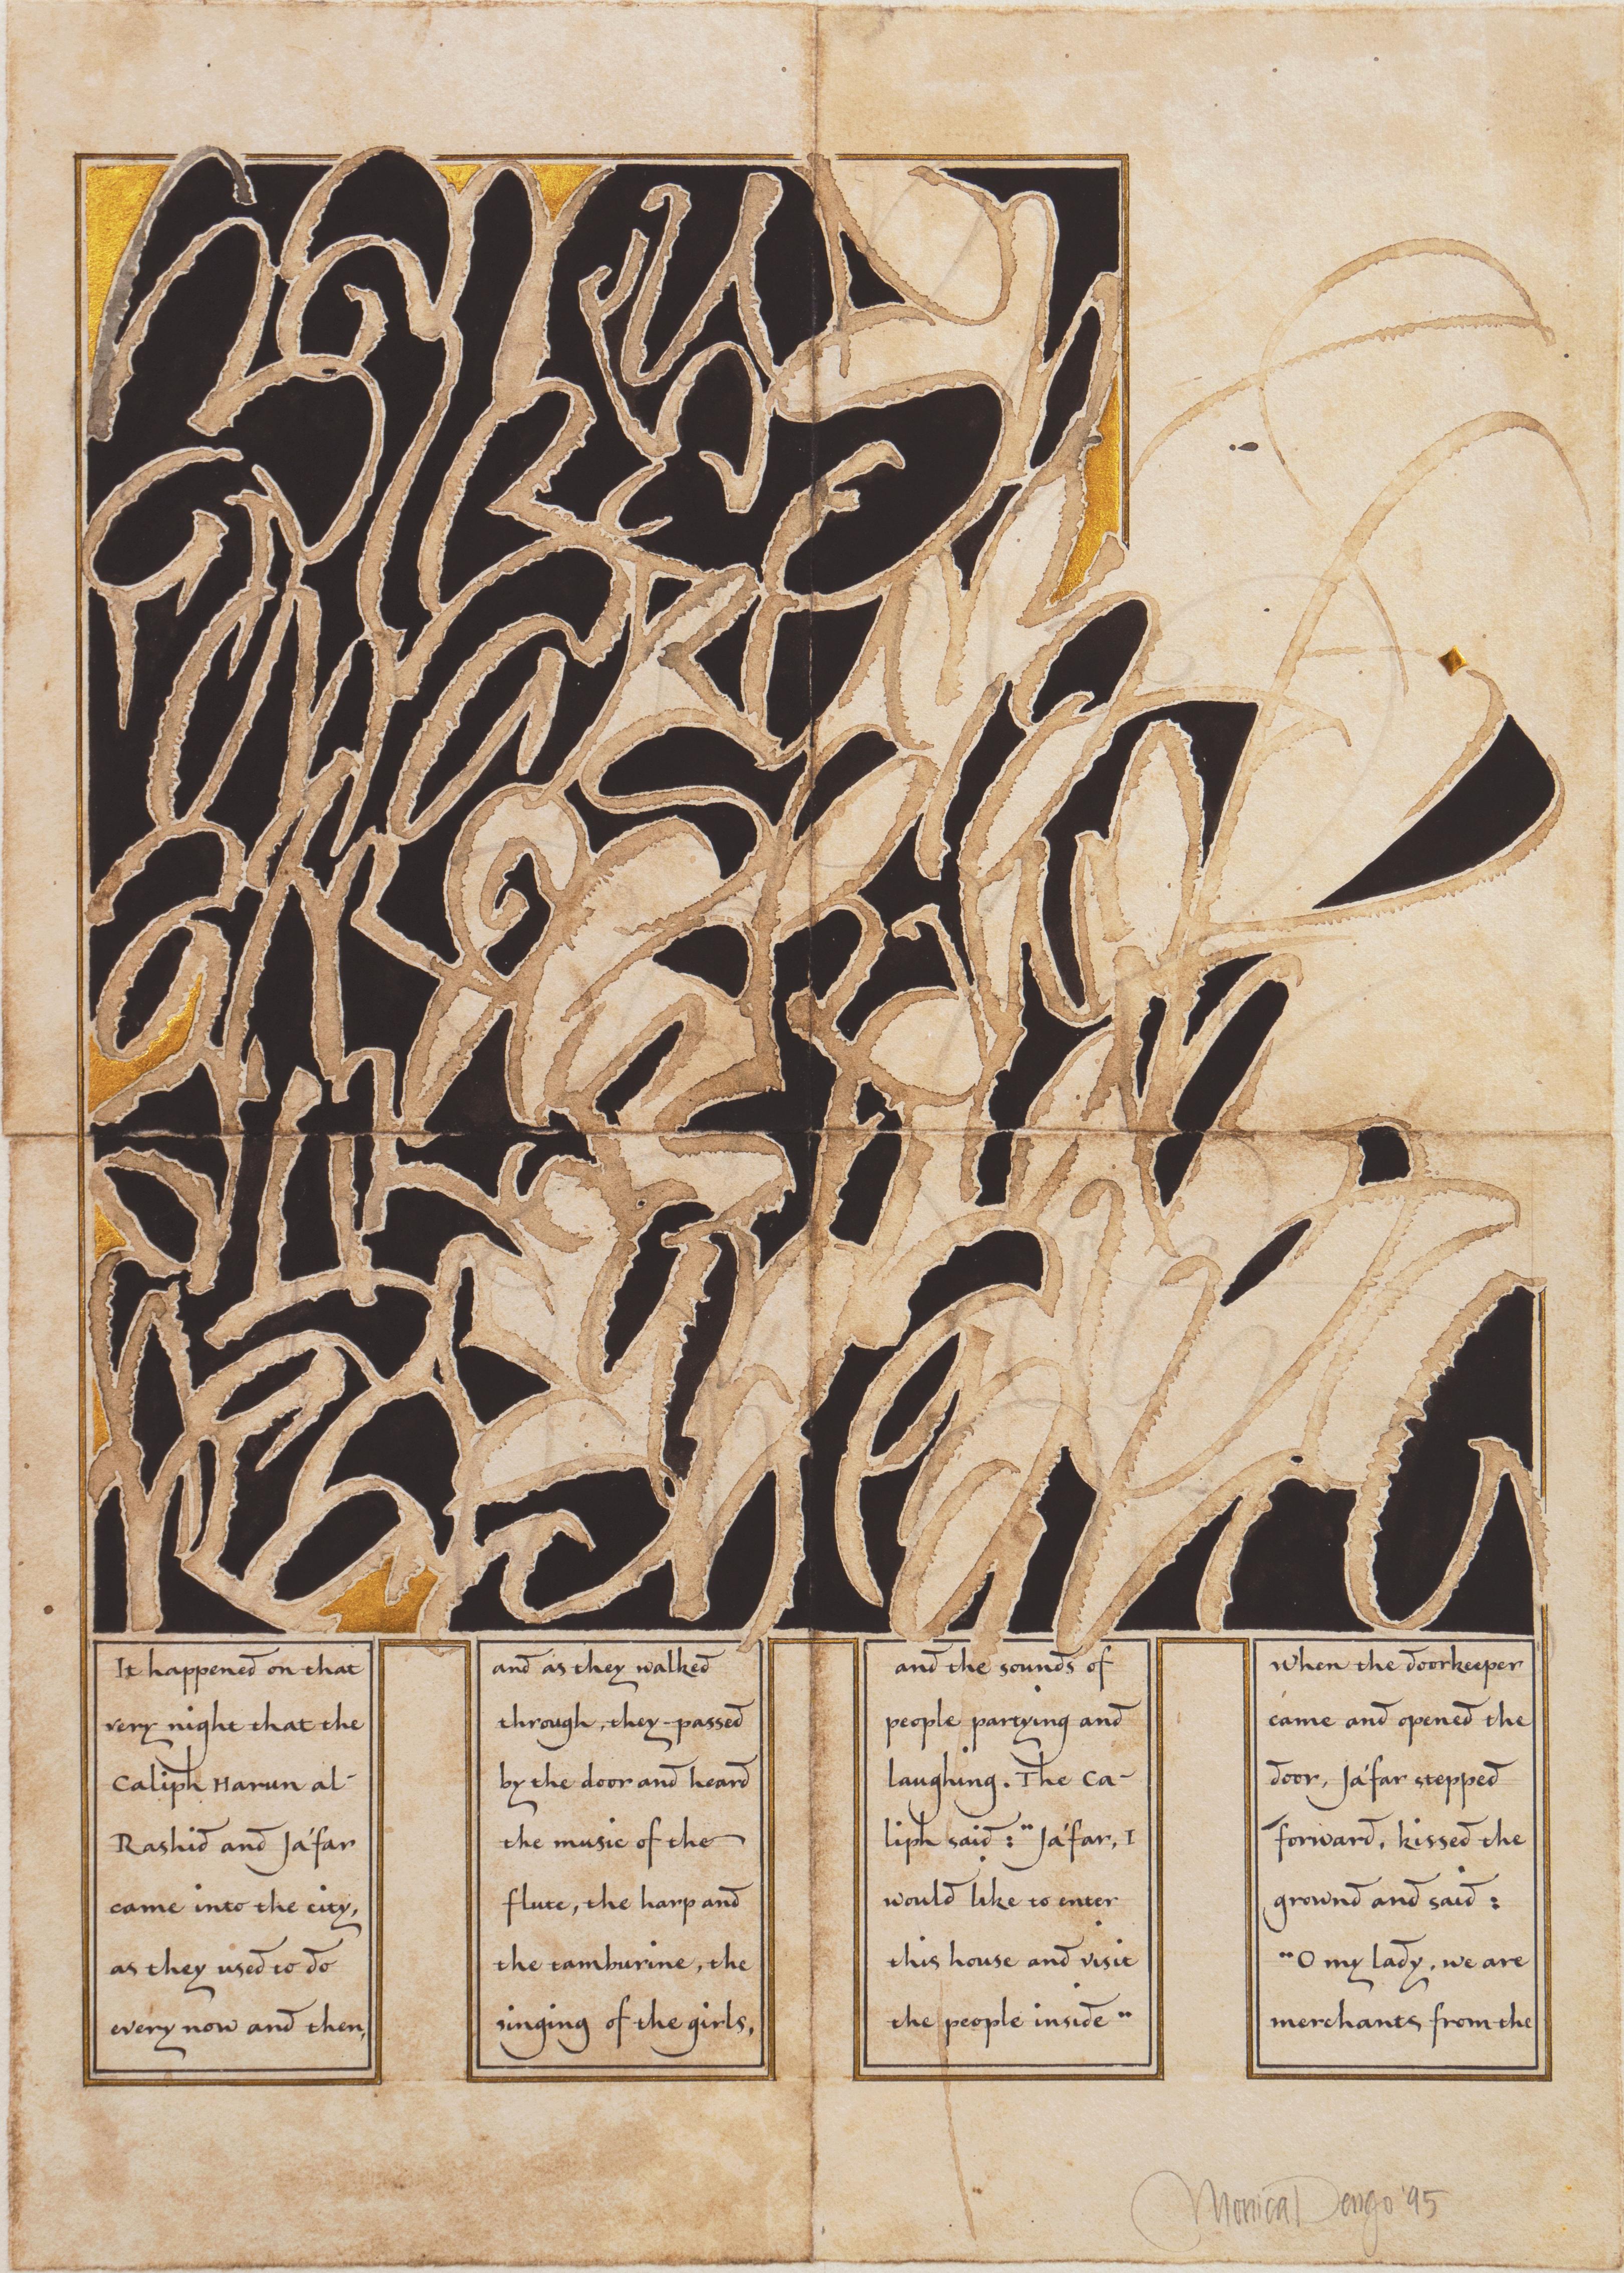 It happened on that
very night that the
Caliph Harun al-
Rashid and Ja'far
came into the city,
as they used to do
every now and then,
and as they walked
through, they passed
by the door and heard
the music of the
flute, the harp and
the tamburine, the
singing of the girls,
and the sounds of
people partying and
laughing. The Ca-
liph said: "Ja'far, I
would like to enter
this house and visit
the people inside"
When the doorkeeper
came and opened the
door, Ja'far stepped
forward, kissed the
grownd and said:
"O my lady, we are
merchants from the
Monica Dengo '95